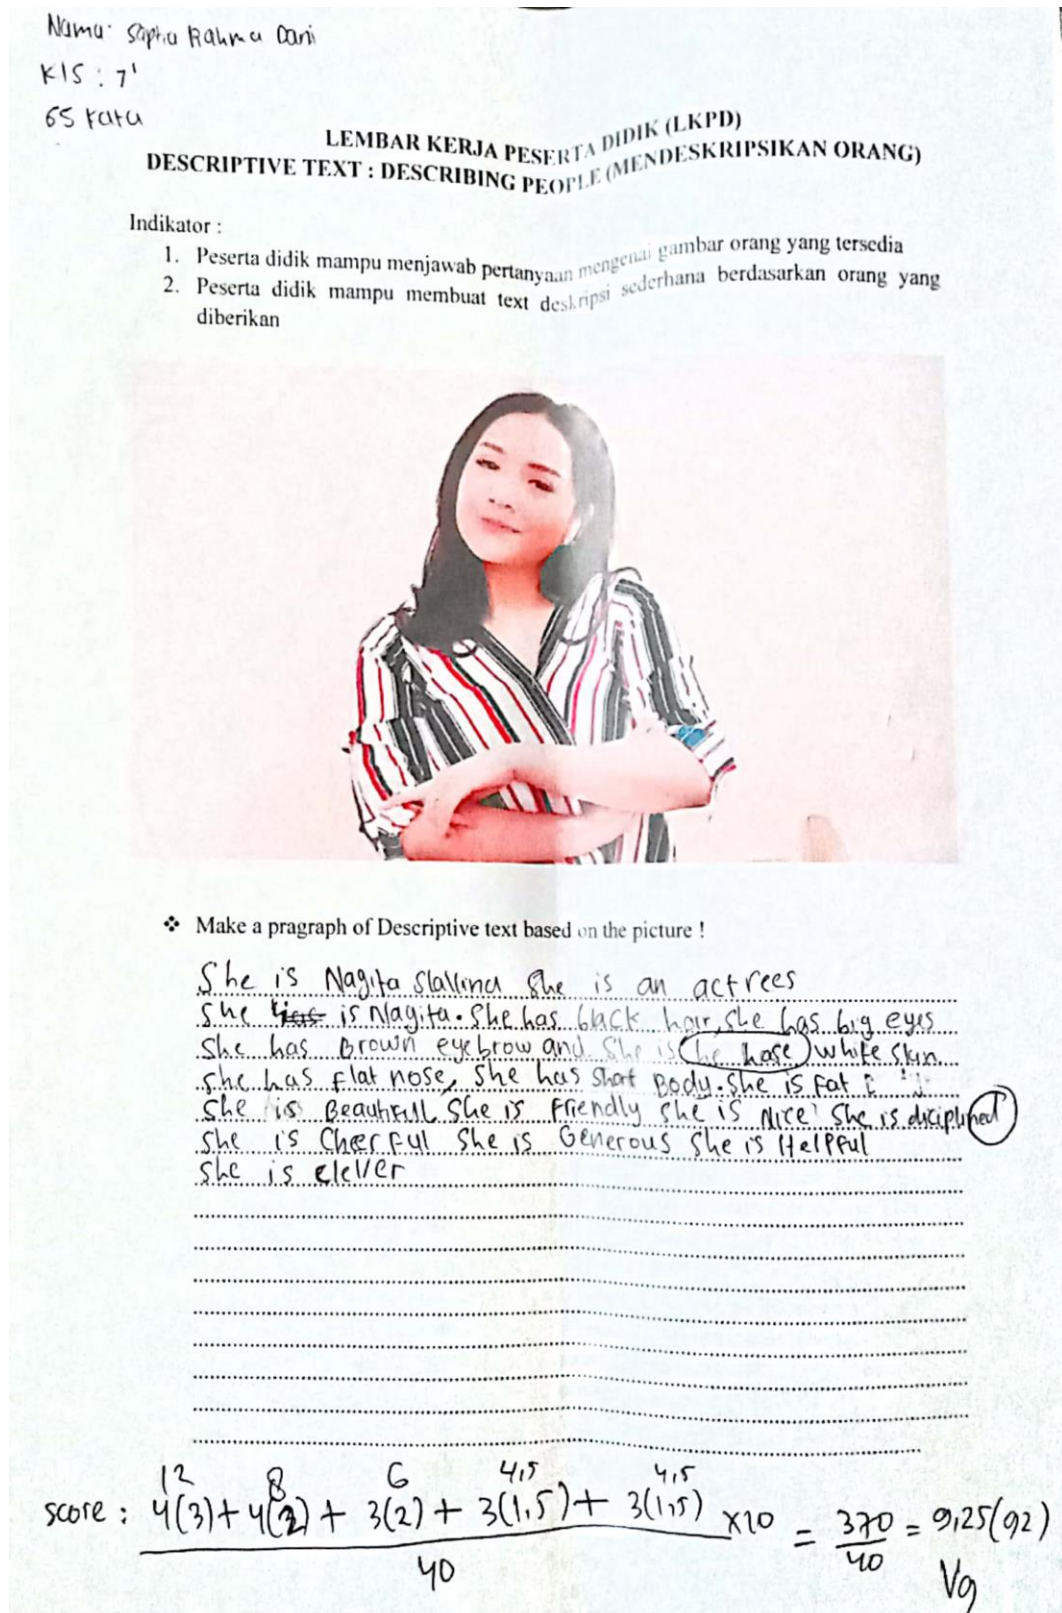 Nama: Sapha Rahma Dani
Kls : 7'
65 kata
LEMBAR KERJA PESERTA DIDIK (LKPD)
DESCRIPTIVE TEXT : DESCRIBING PEOPLE (MENDESKRIPSIKAN ORANG)
Indikator :
1. Peserta didik mampu menjawab pertanyaan mengenai gambar orang yang tersedia
2. Peserta didik mampu membuat text deskripsi sederhana berdasarkan orang yang
diberikan
❖ Make a pragraph of Descriptive text based on the picture !
She is Nagita Slavina She is an actrees
She is Nagita. She has black hair, she has big eyes
She has Brown eyebrow and She is (he hase) white skin
she has flat nose, she has short Body. she is Fat
she is Beautifull She is Friendly she is Nice she is diciplined
she is Cheerful she is Generous she is Helpful
she is clever
12 8 6 4,5 4,5
score : 4(3) + 4(2) + 3(2) + 3(1,5) + 3(1,5) x10 = 370 = 9,25 (92)
40 40 Vg